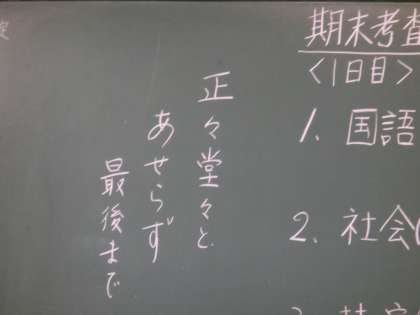 期末考査
＜1日目＞
1. 国語
2. 社会(
正々堂々と
あせらず
最後まで